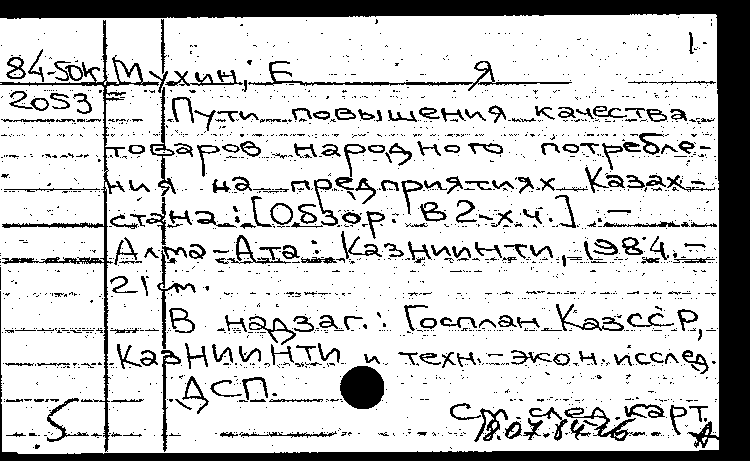 1.
84-50к Мухин, Е Я
2053 =
Пути повышения качества
товаров народного потребле-
ния на предприятиях Казах-
стана: [Обзор. В 2-х ч.]. -
Алма-Ата: КазНИИНТИ, 1984. -
21 см.
В надзаг.: Госплан КазССР,
КазНИИНТИ и техн.-экон. исслед.
ДСП.
См. след. карт
5 18.07.84